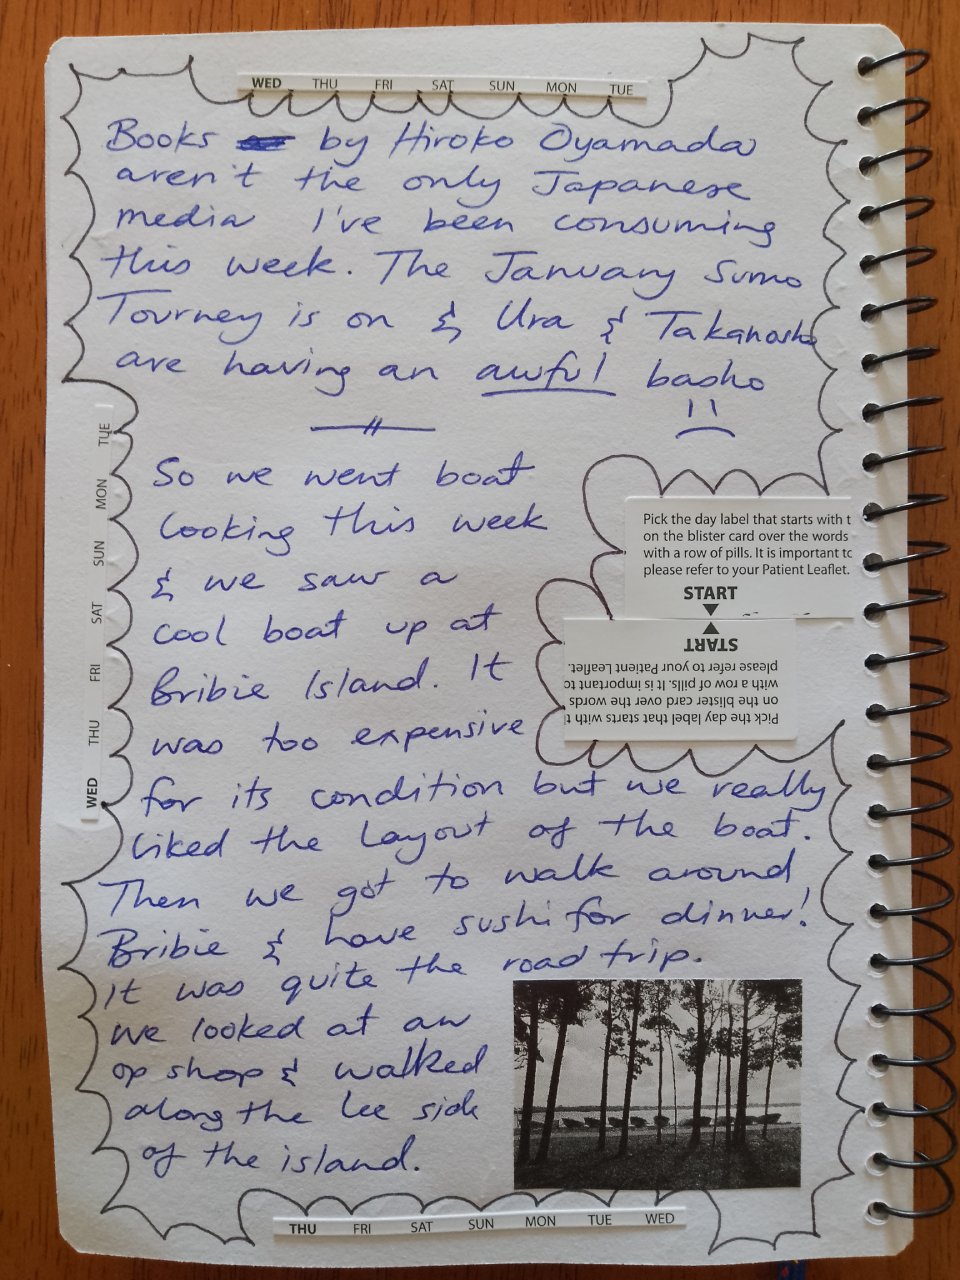 WED THU FRI SAT SUN MON TUE
Books by Hiroko Oyamada
aren't the only Japanese
media I've been consuming
this week. The January Sumo
Tourney is on & Ura & Takanosho
are having an awful basho
TUE MON SUN SAT FRI THU WED
So we went boat
looking this week
& we saw a
cool boat up at
Bribie Island. It
was too expensive
for its condition but we really
liked the layout of the boat.
Then we got to walk around
Bribie & have sushi for dinner!
It was quite the road trip.
We looked at an
op shop & walked
along the lee side
of the island.
Pick the day label that starts with t
on the blister card over the words
with a row of pills. It is important to
please refer to your Patient Leaflet.
START
START
please refer to your Patient Leaflet.
with a row of pills. It is important to
on the blister card over the words
Pick the day label that starts with t
THU FRI SAT SUN MON TUE WED